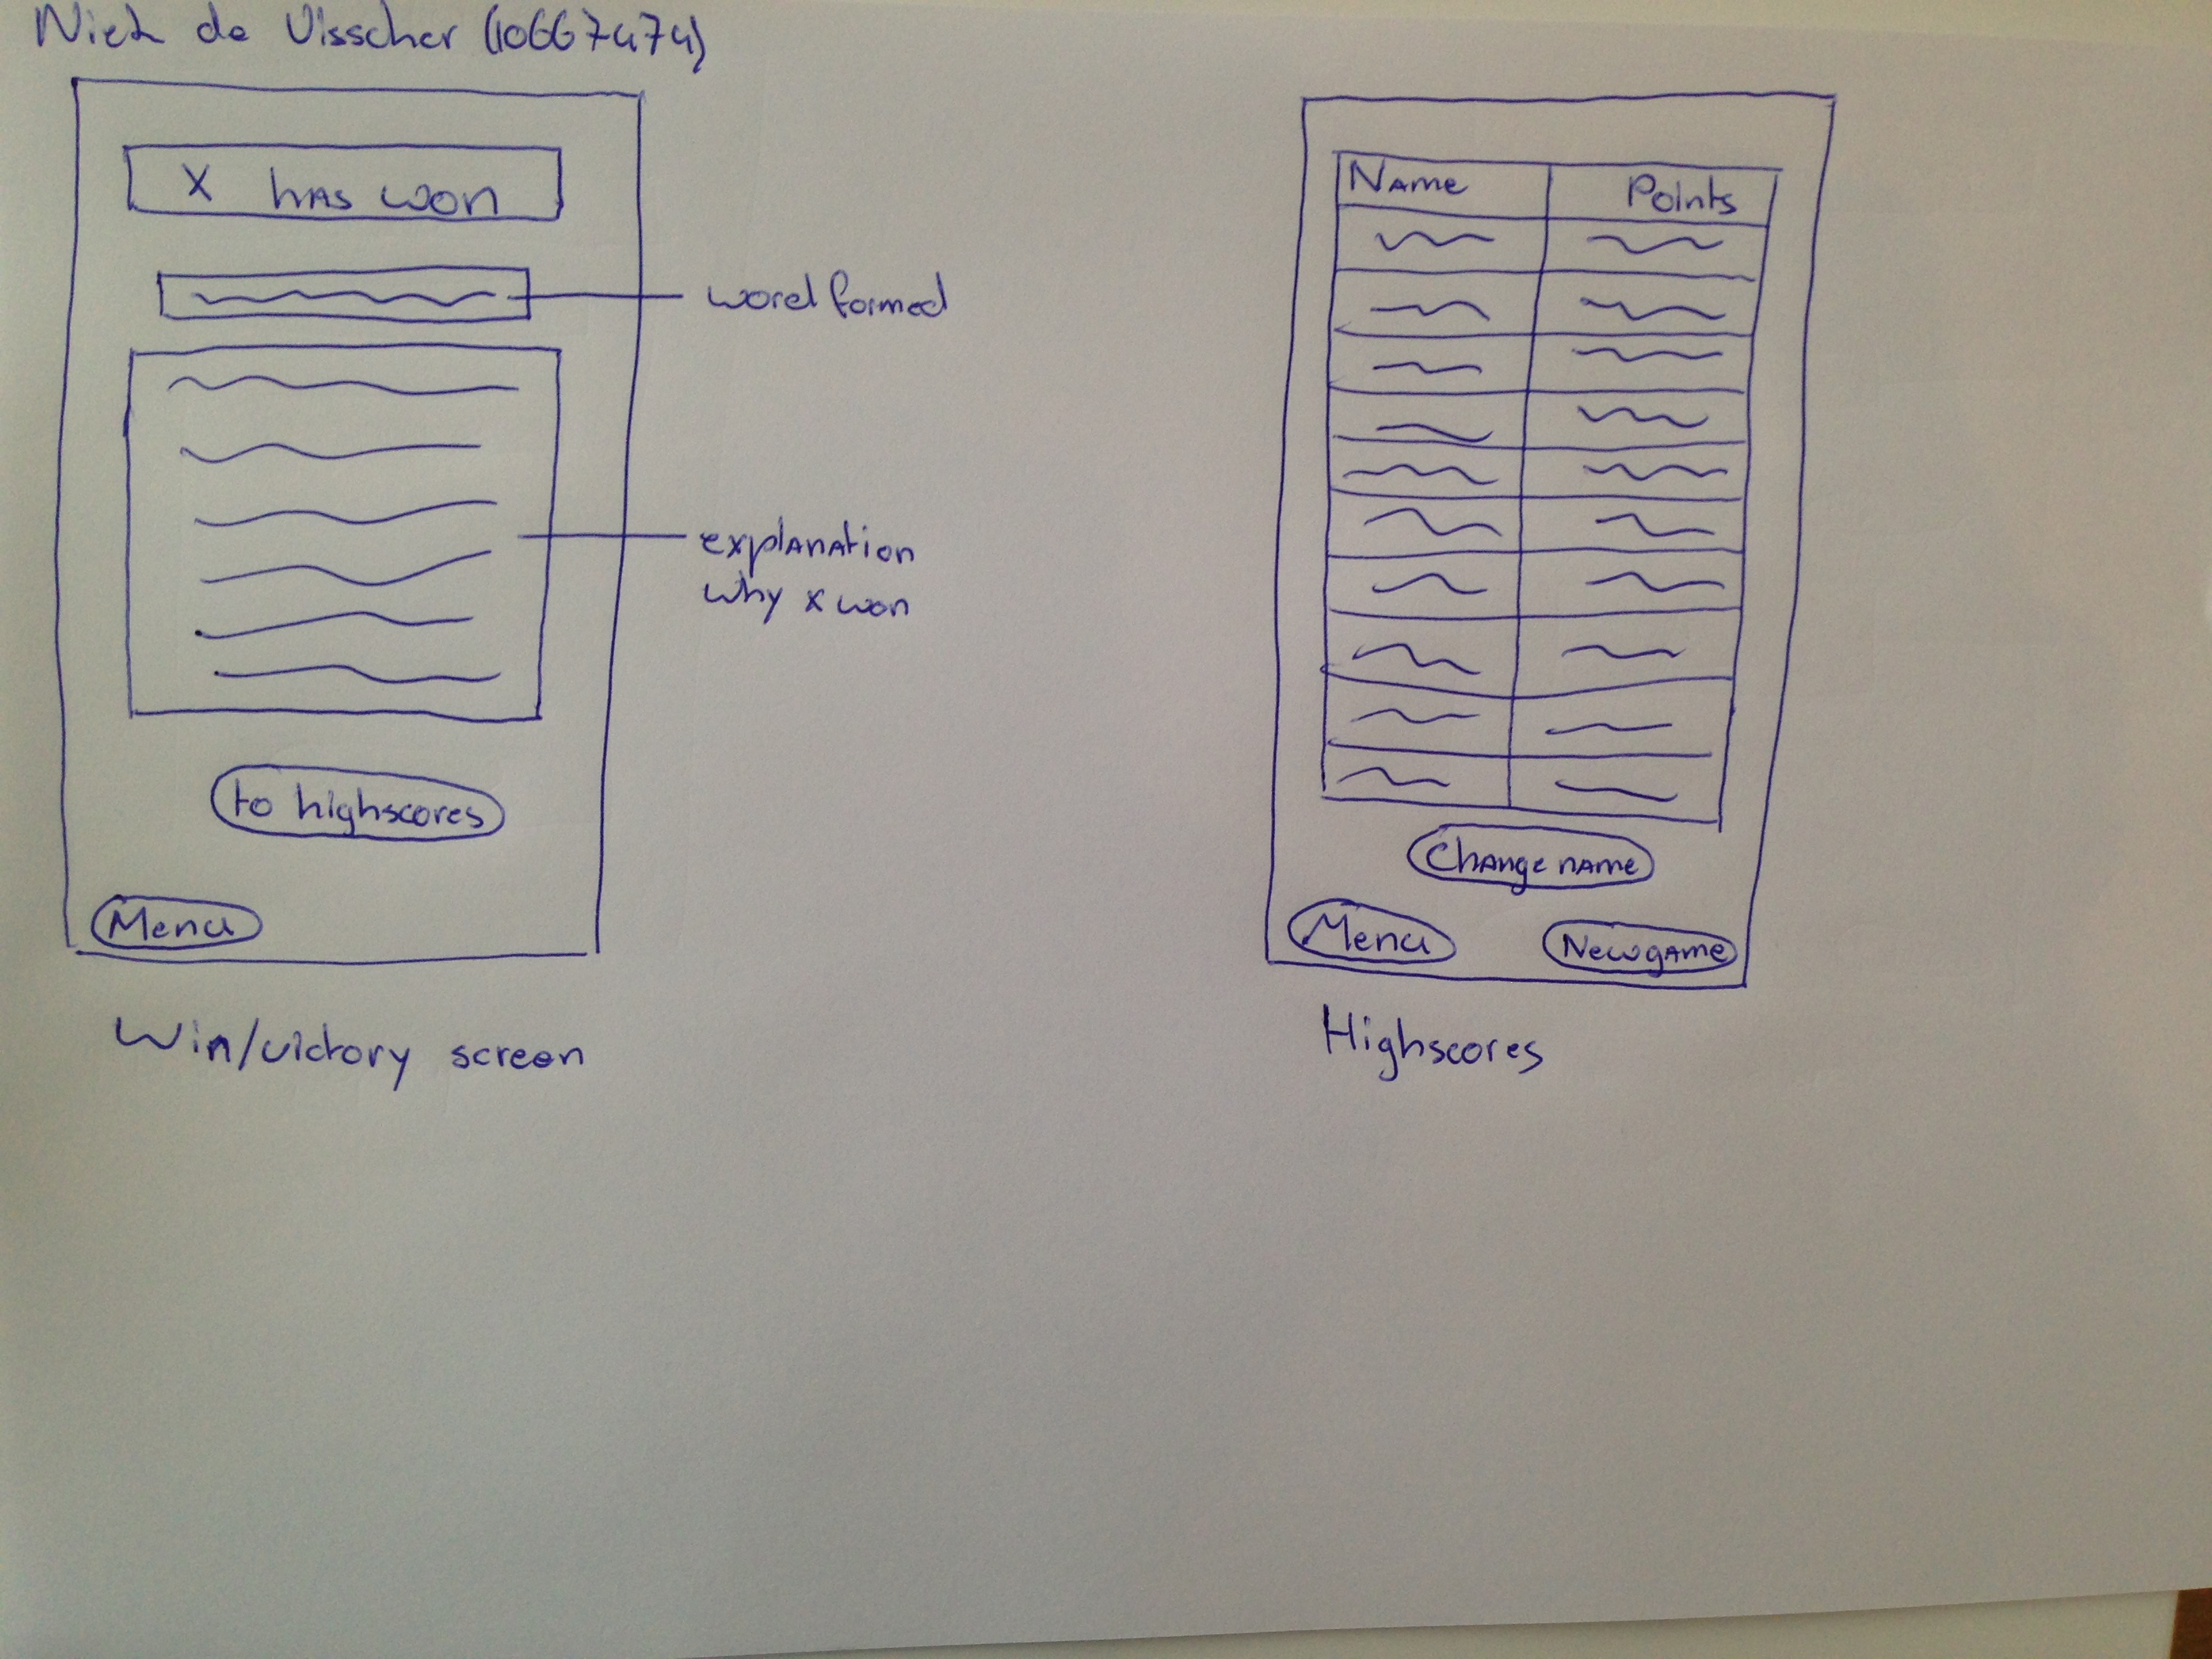 de Visscher (10667474)
X has won
word formed
explanation
why x won
to highscores
Menu
Win/victory screen
Name Points
Change name
Menu New game
Highscores